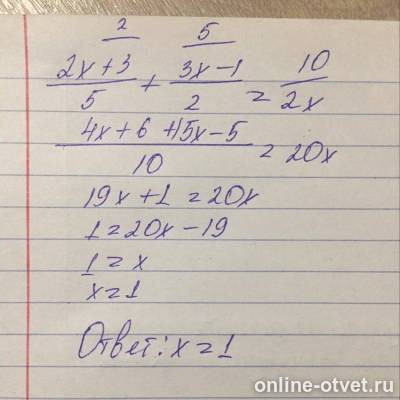 2 5 10
2x+3 / 5 + 3x-1 / 2 = 2x
4x+6+15x-5 / 10 = 20x
19x+1=20x
1=20x-19
1=x
x=1
Ответ: x=1
online-otvet.ru